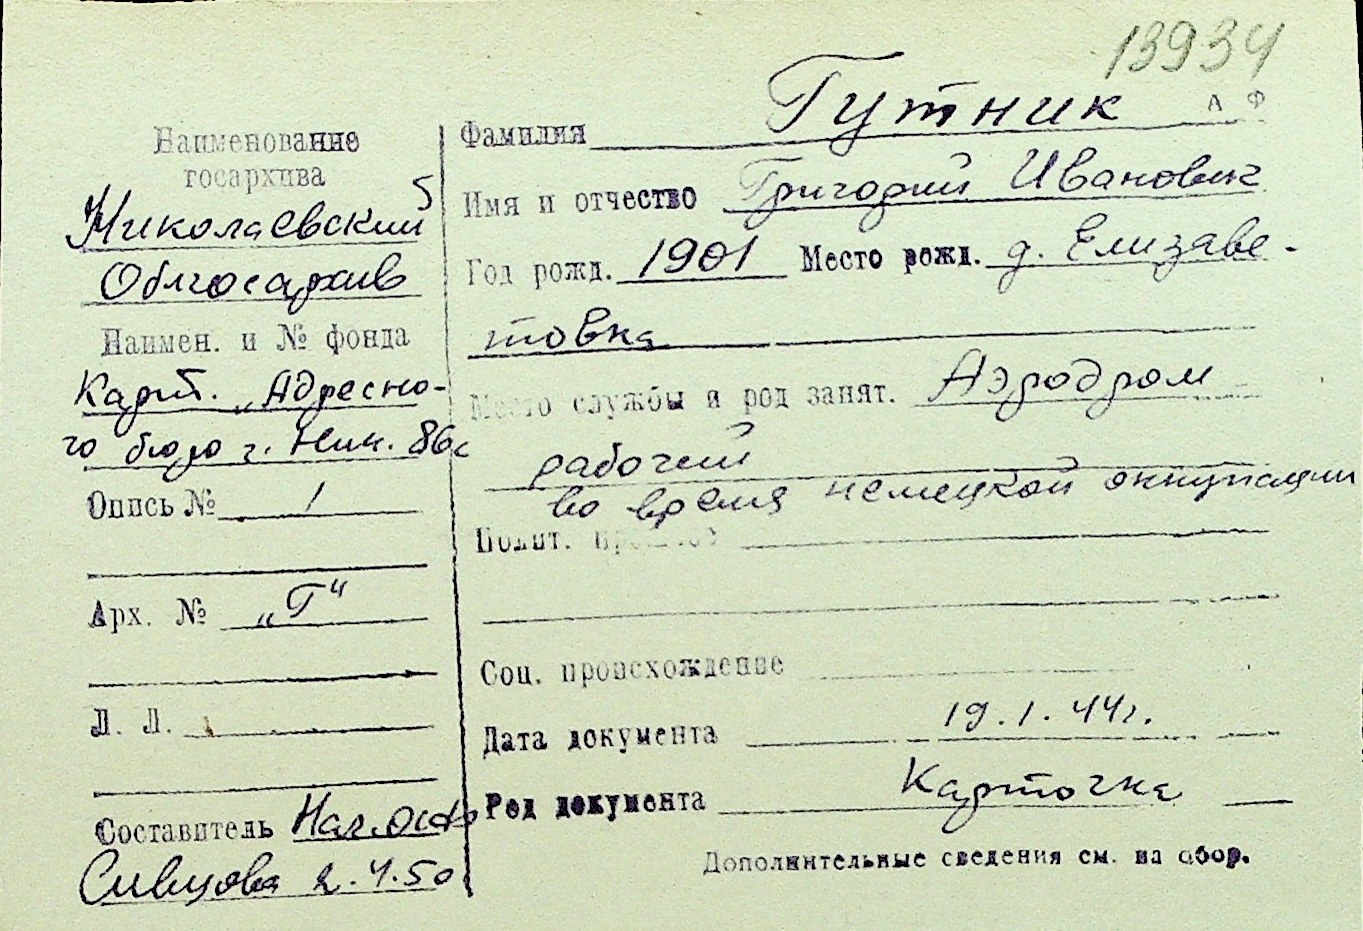 13934
А Ф
Наименование
госархива
Николаевский
Облгосархив
Наимен. и № фонда
Карт. „Адресно-
го бюро г. Ник. 86с
Опись № 1
Арх. № „Г“
Л. Л.
Составитель
Сивцова 2.4.50
Фамилия Гутник
Имя и отчество Григорий Иванович
Год рожд. 1901 Место рожд. д. Елизаве-
товка
Место службы и род занят. Аэродром
рабочий
во время немецкой оккупации
Полит. прошлое
Соц. происхождение
Дата документа 19.1.44г.
Род документа Карточка
Дополнительные сведения см. на обор.